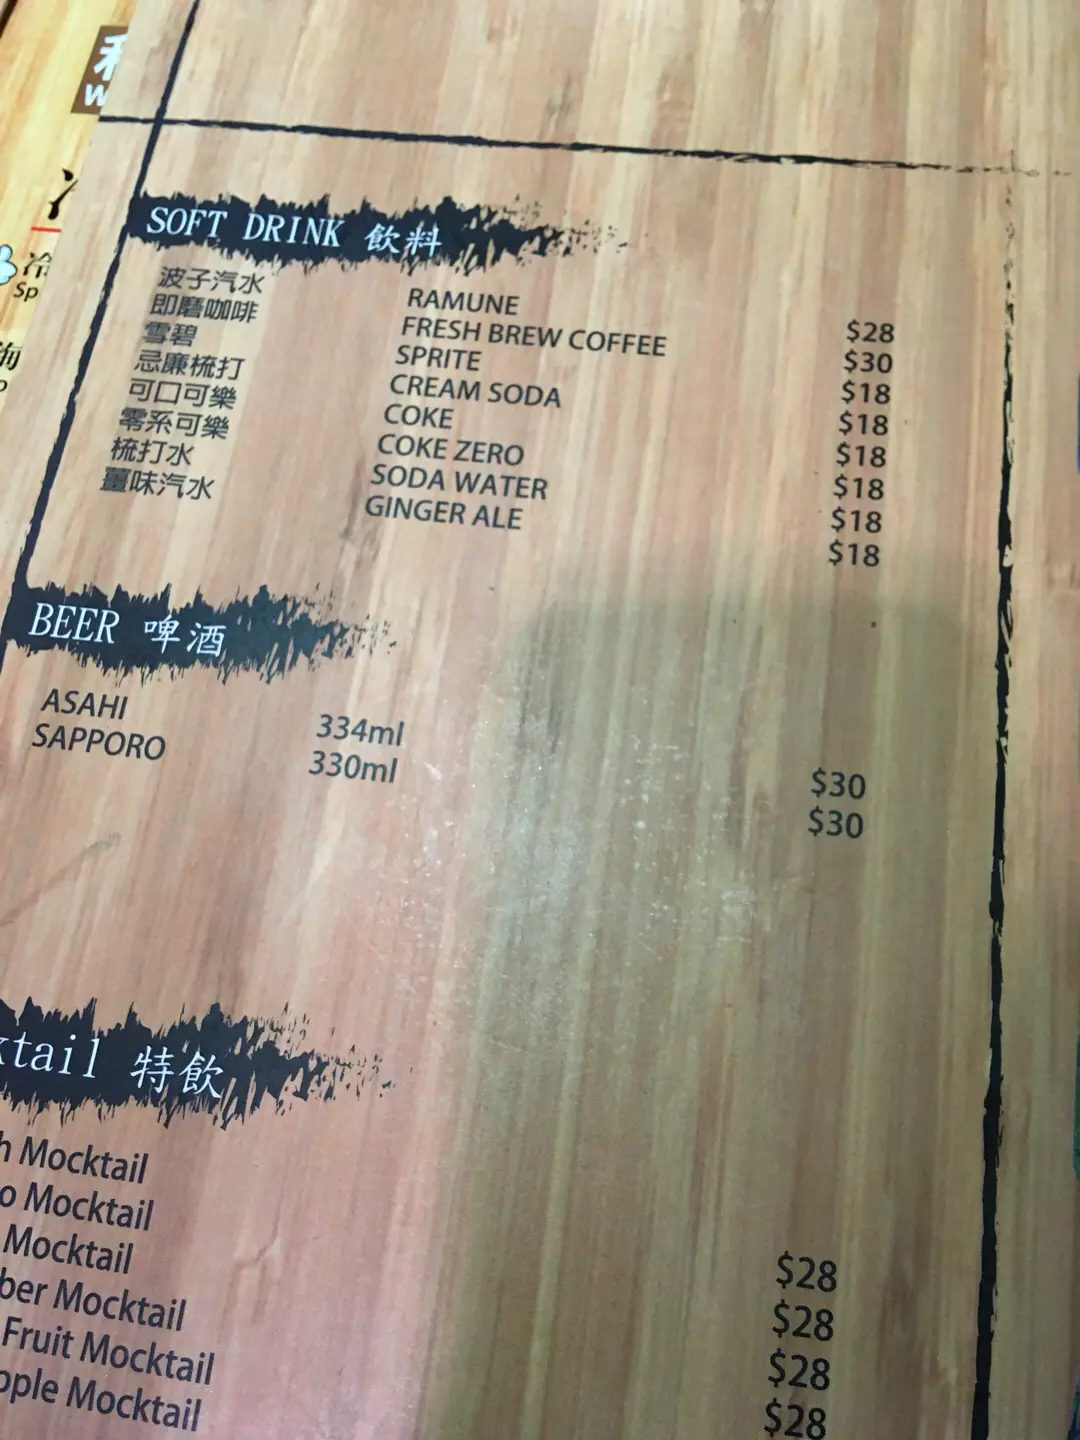 SOFT DRINK 飲料
波子汽水 RAMUNE $28
即磨咖啡 FRESH BREW COFFEE $30
雪碧 SPRITE $18
忌廉梳打 CREAM SODA $18
可口可樂 COKE $18
零系可樂 COKE ZERO $18
梳打水 SODA WATER $18
薑味汽水 GINGER ALE $18
BEER 啤酒
ASAHI 334ml $30
SAPPORO 330ml $30
ktail 特飲
h Mocktail $28
o Mocktail $28
Mocktail $28
ber Mocktail $28
Fruit Mocktail
pple Mocktail